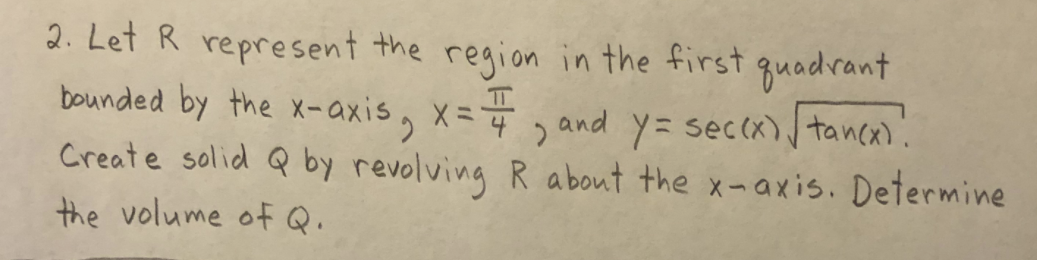 2. Let R represent the region in the first quadrant
bounded by the x-axis, x = π/4, and y = sec(x)√tan(x).
Create solid Q by revolving R about the x-axis. Determine
the volume of Q.